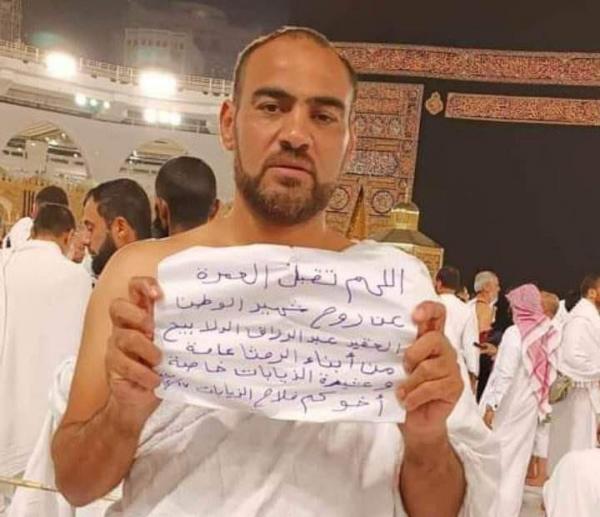 اللهم تقبل العمرة
عن روح شهيد الوطن
العقيد عبد الرزاق الدلابيح
من أبناء الرمثا عامة
وعشيرة الذيابات خاصة
أخوكم فلاح الذيابات